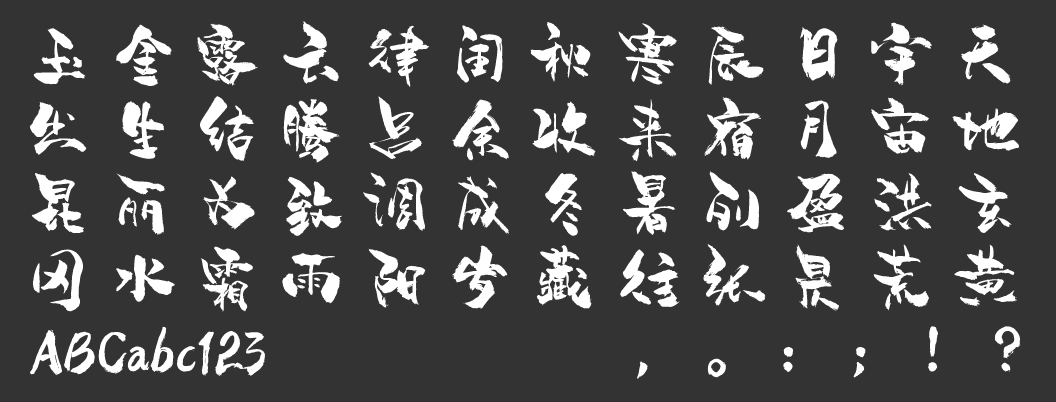 天地玄黄
宇宙洪荒
日月盈昃
辰宿列张
寒来暑往
秋收冬藏
闰余成岁
律吕调阳
云腾致雨
露结为霜
金生丽水
玉出昆冈
ABCabc123
，。：；！？